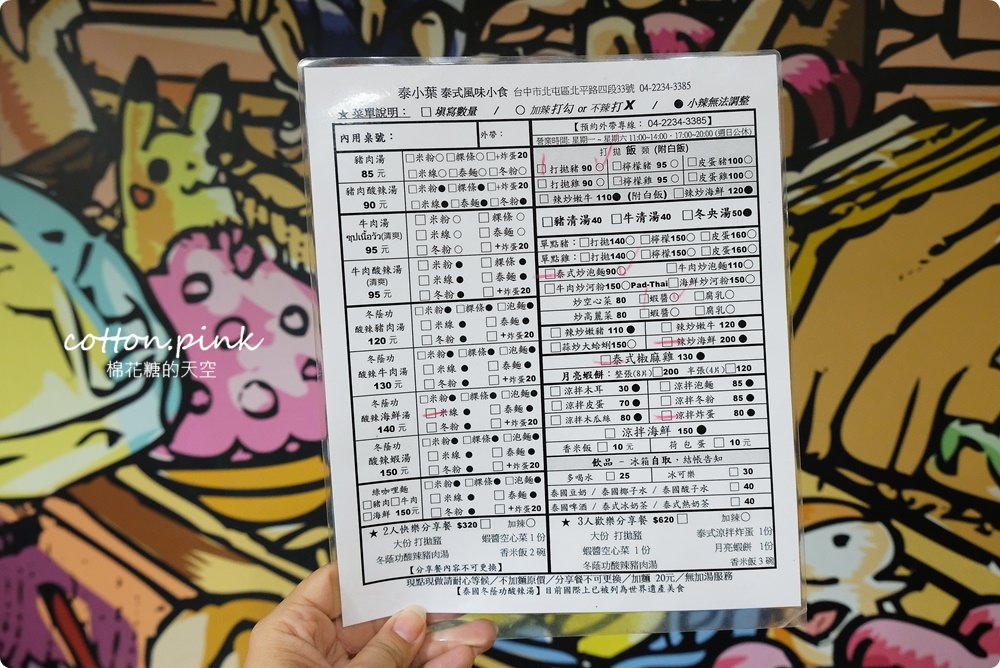 泰小葉 泰式風味小食 台中市北屯區北平路四段33號 04-2234-3385
★ 菜單說明： □ 填寫數量 / ○ 加辣打勾 or 不辣打X / ● 小辣無法調整
內用桌號： 外帶：
豬肉湯 85 元
□米粉○□粿條○□+炸蛋20
□米線○□泰麵○□冬粉○
豬肉酸辣湯 90 元
□米粉●□粿條●□+炸蛋20
□米線●□泰麵●□冬粉●
牛肉湯 ซุปเนื้อวัว(清爽) 95 元
□米粉○ □粿條○
□米線○ □泰麵○
□冬粉○ □+炸蛋20
牛肉酸辣湯 (清爽) 95 元
□米粉● □粿條●
□米線● □泰麵●
□冬粉● □+炸蛋20
冬蔭功 酸辣豬肉湯 120 元
□米粉●□粿條●□泡麵●
□米線● □泰麵●
□冬粉● □+炸蛋20
冬蔭功 酸辣牛肉湯 130 元
□米粉●□粿條●□泡麵●
□米線● □泰麵●
□冬粉● □+炸蛋20
冬蔭功 酸辣海鮮湯 140 元
□米粉●□粿條●□泡麵●
□米線● □泰麵●
□冬粉● □+炸蛋20
冬蔭功 酸辣蝦湯 150 元
□米粉●□粿條●□泡麵●
□米線● □泰麵●
□冬粉● □+炸蛋20
綠咖哩麵 □豬肉□牛肉 □海鮮 150元
□米粉●□粿條●□泡麵●
□米線● □泰麵●
□冬粉● □+炸蛋20
★ 2人快樂分享餐 $320□ 加辣○
大份 打拋豬 蝦醬空心菜 1份
冬蔭功酸辣豬肉湯 香米飯 2碗
【分享餐內容不可更換】
【預約外帶專線：04-2234-3385】
營業時間: 星期一~星期六 11:00~14:00，17:00~20:00 (週日公休)
打 拋 飯 類 (附白飯)
□打拋豬 90○ □檸檬豬 95○ □皮蛋豬100○
□打拋雞 90○ □檸檬雞 95○ □皮蛋雞100○
□辣炒嫩牛 110● (附白飯) □辣炒海鮮 120●
□豬清湯40 □牛清湯40 □冬央湯50●
單點豬：□打拋140○ □檸檬150○ □皮蛋160○
單點雞：□打拋140○ □檸檬150○ □皮蛋160○
□泰式炒泡麵90○ □牛肉炒泡麵110○
□牛肉炒河粉150○Pad-Thai□海鮮炒河粉150○
炒空心菜 80 □蝦醬○ □腐乳○
炒高麗菜 80 □蝦醬○ □腐乳○
□辣炒嫩豬 110● □辣炒嫩牛 120●
□蒜炒大蛤蜊150○ □辣炒海鮮 200●
□泰式椒麻雞 130●
月亮蝦餅：整張(8片)□200 半張(4片)□120
□涼拌木耳 30● □涼拌泡麵 85●
□涼拌皮蛋 70● □涼拌冬粉 85●
□涼拌木瓜絲 80● □涼拌炸蛋 80●
□ 涼拌海鮮 150●
香米飯 □ 10 元 荷包蛋 □ 10 元
飲品 – 冰箱自取，結帳告知
多喝水 □ 25 冰可樂 □ 30
泰國豆奶 / 泰國椰子水 / 泰國酸子水 □ 40
泰國啤酒 / 泰式冰奶茶 / 泰式熱奶茶 □ 40
★ 3人歡樂分享餐 $620□ 加辣○
大份 打拋豬 泰式涼拌炸蛋 1份
蝦醬空心菜 1份 月亮蝦餅 1份
冬蔭功酸辣豬肉湯 香米飯 3碗
現點現做請耐心等候／不加麵原價／分享餐不可更換／加麵 20元／無加湯服務
【泰國冬蔭功酸辣湯】目前國際上已被列為世界遺產美食
cotton.pink
棉花糖的天空